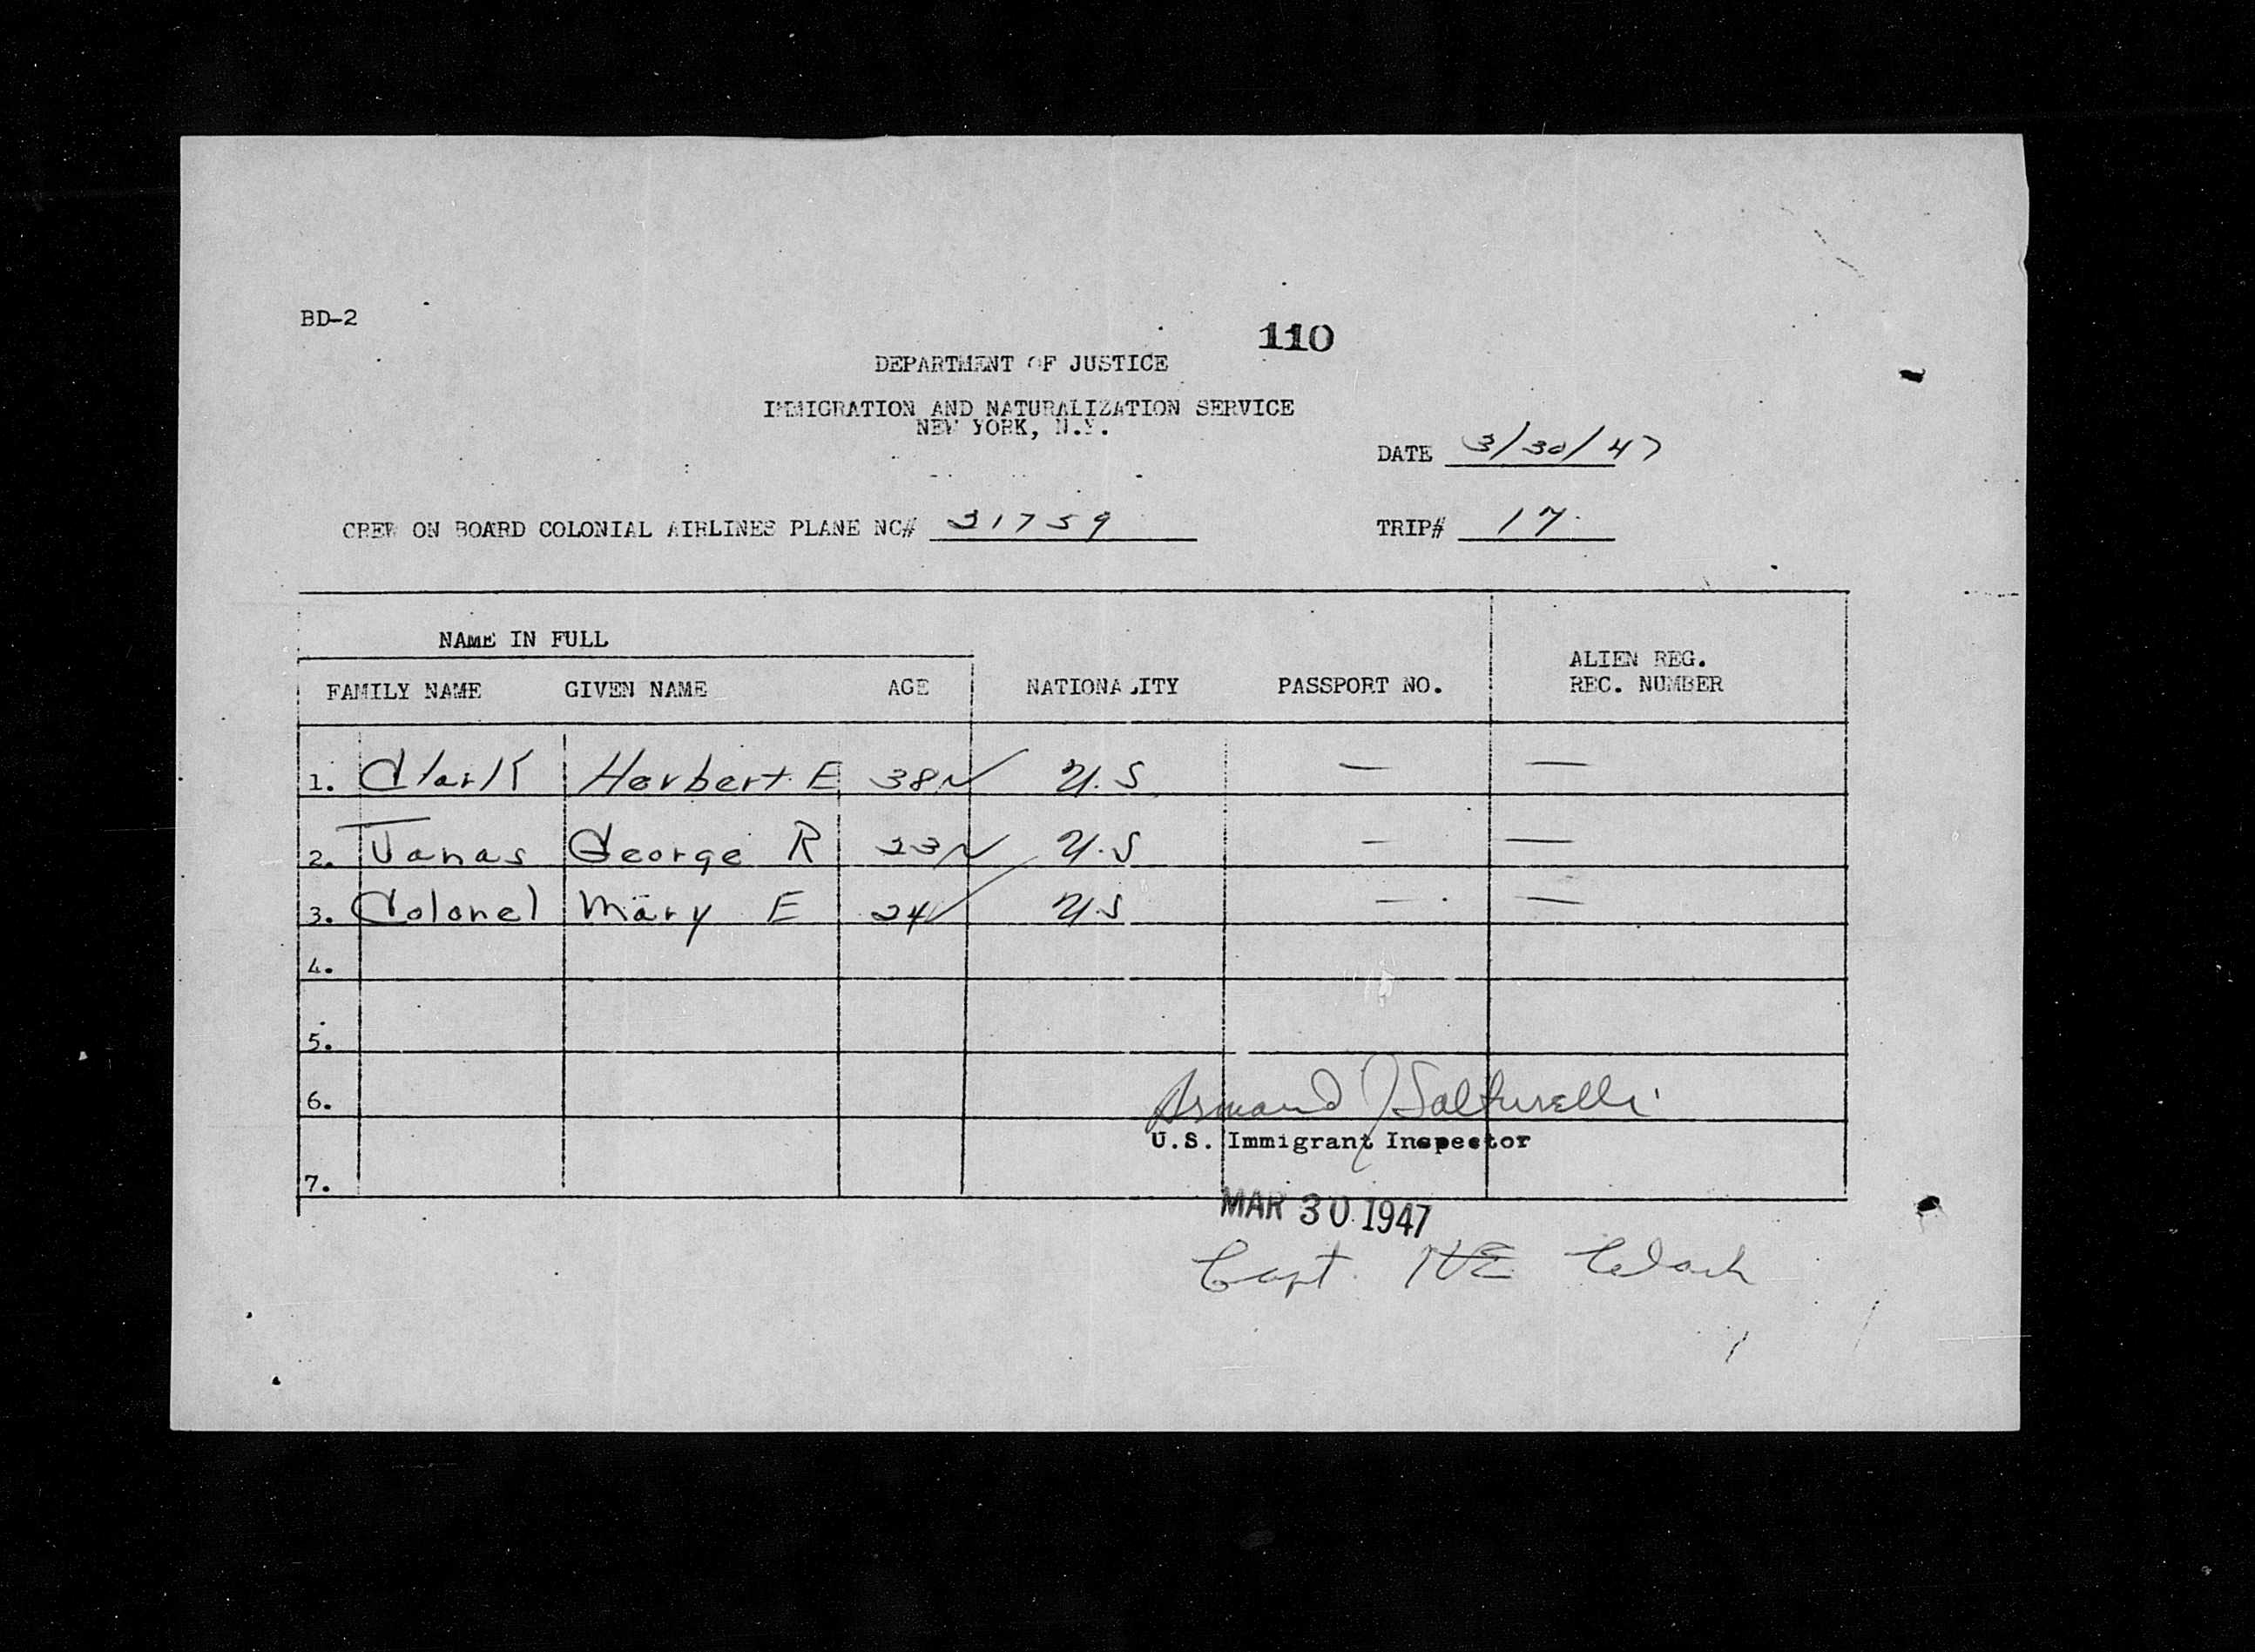 BD-2
110
DEPARTMENT OF JUSTICE
IMMIGRATION AND NATURALIZATION SERVICE
NEW YORK, N.Y.
DATE 3/30/47
CREW ON BOARD COLONIAL AIRLINES PLANE NC# 31759 TRIP# 17
NAME IN FULL
FAMILY NAME GIVEN NAME AGE NATIONALITY PASSPORT NO. ALIEN REG. REC. NUMBER
1. Clark Herbert E 38 ✓ U.S — —
2. Janas George R 23 ✓ U.S — —
3. Colonel Mary E 24 ✓ U.S — —
4.
5.
6.
Armand J
U.S. Immigrant Inspector
7.
MAR 30 1947
Capt. HE Clark